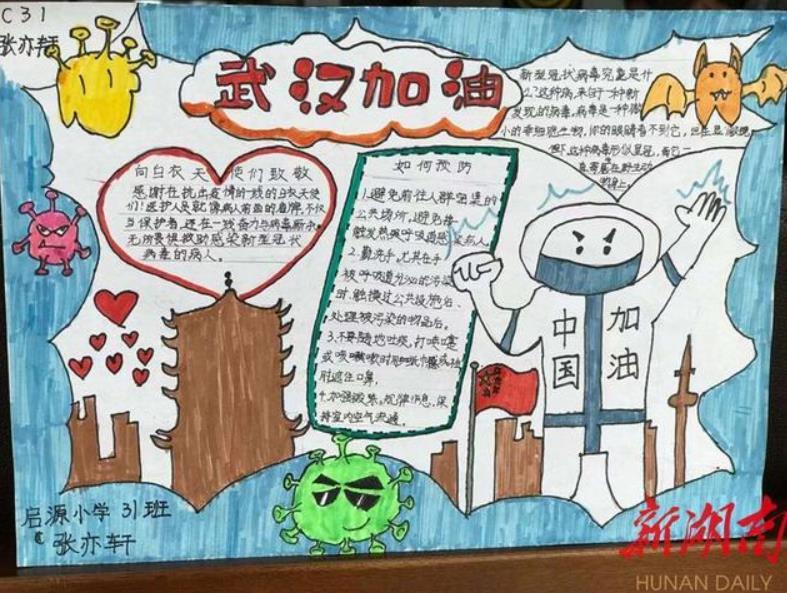 C31
张亦轩
武汉加油
新型冠状病毒究竟是什
么?这种病,来自于一种新
发现的病毒,病毒是一种微
小的非细胞生物,你的眼睛看不到它,但在显微镜
下,这种病毒形似皇冠,而它一
直寄宿在野生动
物身上。
向白衣天使们致敬
感谢在抗击疫情的一线的白衣天使
们!医护人员就像病人前面的盾牌,不仅
保护者,还在一线奋力与病毒厮杀
无所畏惧救助感染新型冠状
病毒的病人。
如何预防
1.避免前往人群密集的
公共场所,避免接
触发热与呼吸道感染病人。
2.勤洗手,尤其在手
被呼吸道分泌的污染
时、触摸过公共设施后、
处理被污染的物品后。
3.不要随地吐痰,打喷嚏
或咳嗽时用纸巾或
肘遮住口鼻,
4.加强锻炼,规律作息,保
持室内空气流通。
中国
加油
启源小学 31班
张亦轩
新湖南
HUNAN DAILY